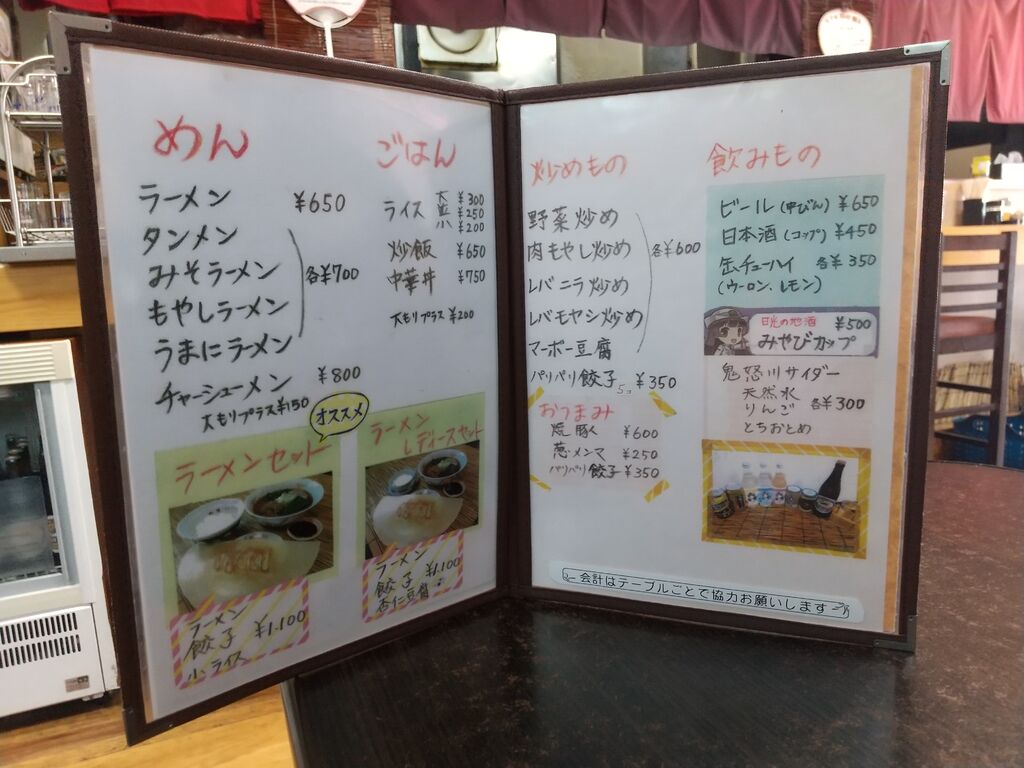 めん
ラーメン ¥650
タンメン
みそラーメン
もやしラーメン
うまにラーメン
各¥700
チャーシューメン ¥800
大もりプラス¥150
ごはん
ライス 大 ¥300
並 ¥250
小 ¥200
炒飯 ¥650
中華丼 ¥750
大もりプラス ¥200
オススメ
ラーメンセット
ラーメン
餃子 ¥1.100
小ライス
ラーメン
レディースセット
ラーメン
餃子 ¥1.100
杏仁豆腐
炒めもの
野菜炒め
肉もやし炒め
レバニラ炒め
レバモヤシ炒め
各¥600
マーボー豆腐
パリパリ餃子 5コ ¥350
おつまみ
焼豚 ¥600
葱メンマ ¥250
パリパリ餃子 ¥350
飲みもの
ビール (中びん) ¥650
日本酒 (コップ) ¥450
缶チューハイ 各¥350
(ウーロン、レモン)
日光の地酒 ¥500
みやびカップ
鬼怒川サイダー
天然水
りんご 各¥300
とちおとめ
会計はテーブルごとで協力お願いします